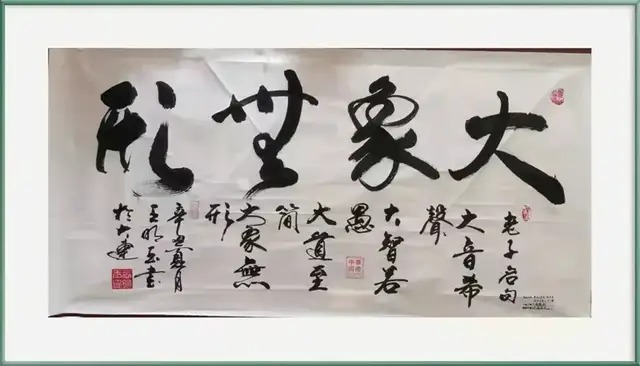 大象無形
老子名句
大音希
聲
大智若
愚
大道至
簡
大象無
形
辛丑夏月
王明書
於大連